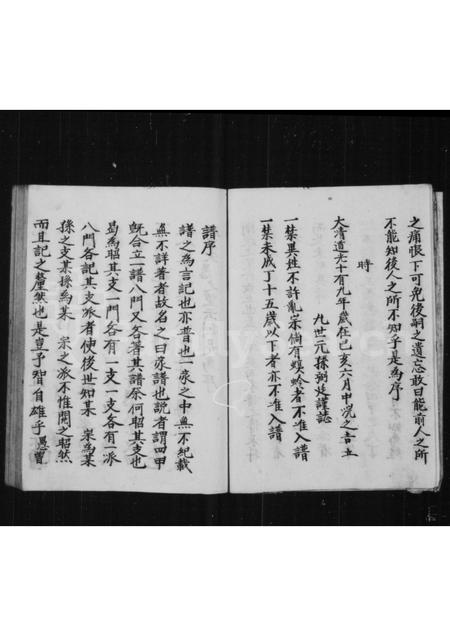 之痛恨下可免後嗣之遺忘敢曰能前人之所
不能知後人之所不知乎是為序
時
大清道光十有九年歲在己亥六月中浣之吉立
九世元孫 謹誌
一禁異姓不許亂宗倘有螟蛉者不准入譜
一禁未成丁十五歲以下者亦不准入譜
譜序
譜之為言記也亦普也一家之中無不紀載
無不詳著者故名之曰家譜也説者謂四甲
既合立一譜八門又各著其譜奈何昭其支也
曷為昭其支一門各有一支一支各有一派
八門各記其支派者使後世知某 宗為某
孫之支某孫為某 宗之派不惟開之昭然
而且記之釐然也是豈予智自雄乎愚曾